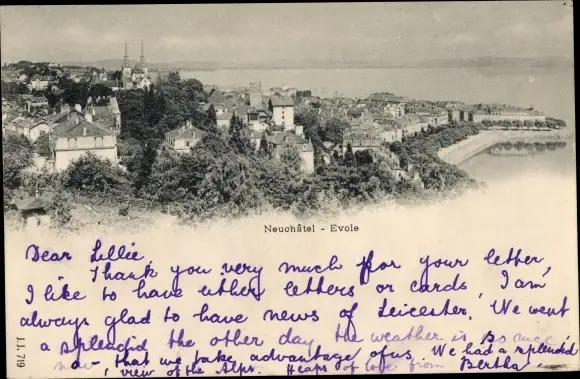 Neuchâtel - Evole
Dear Lillie,
Thank you very much for your letter,
I like to have either letters or cards, I am
always glad to have news of Leicester. We went
a splendid the other day the weather is so nice
now that we take advantage of us. We had a splendid
view of the Alps. Heaps of love from Bertha
J.J. 719